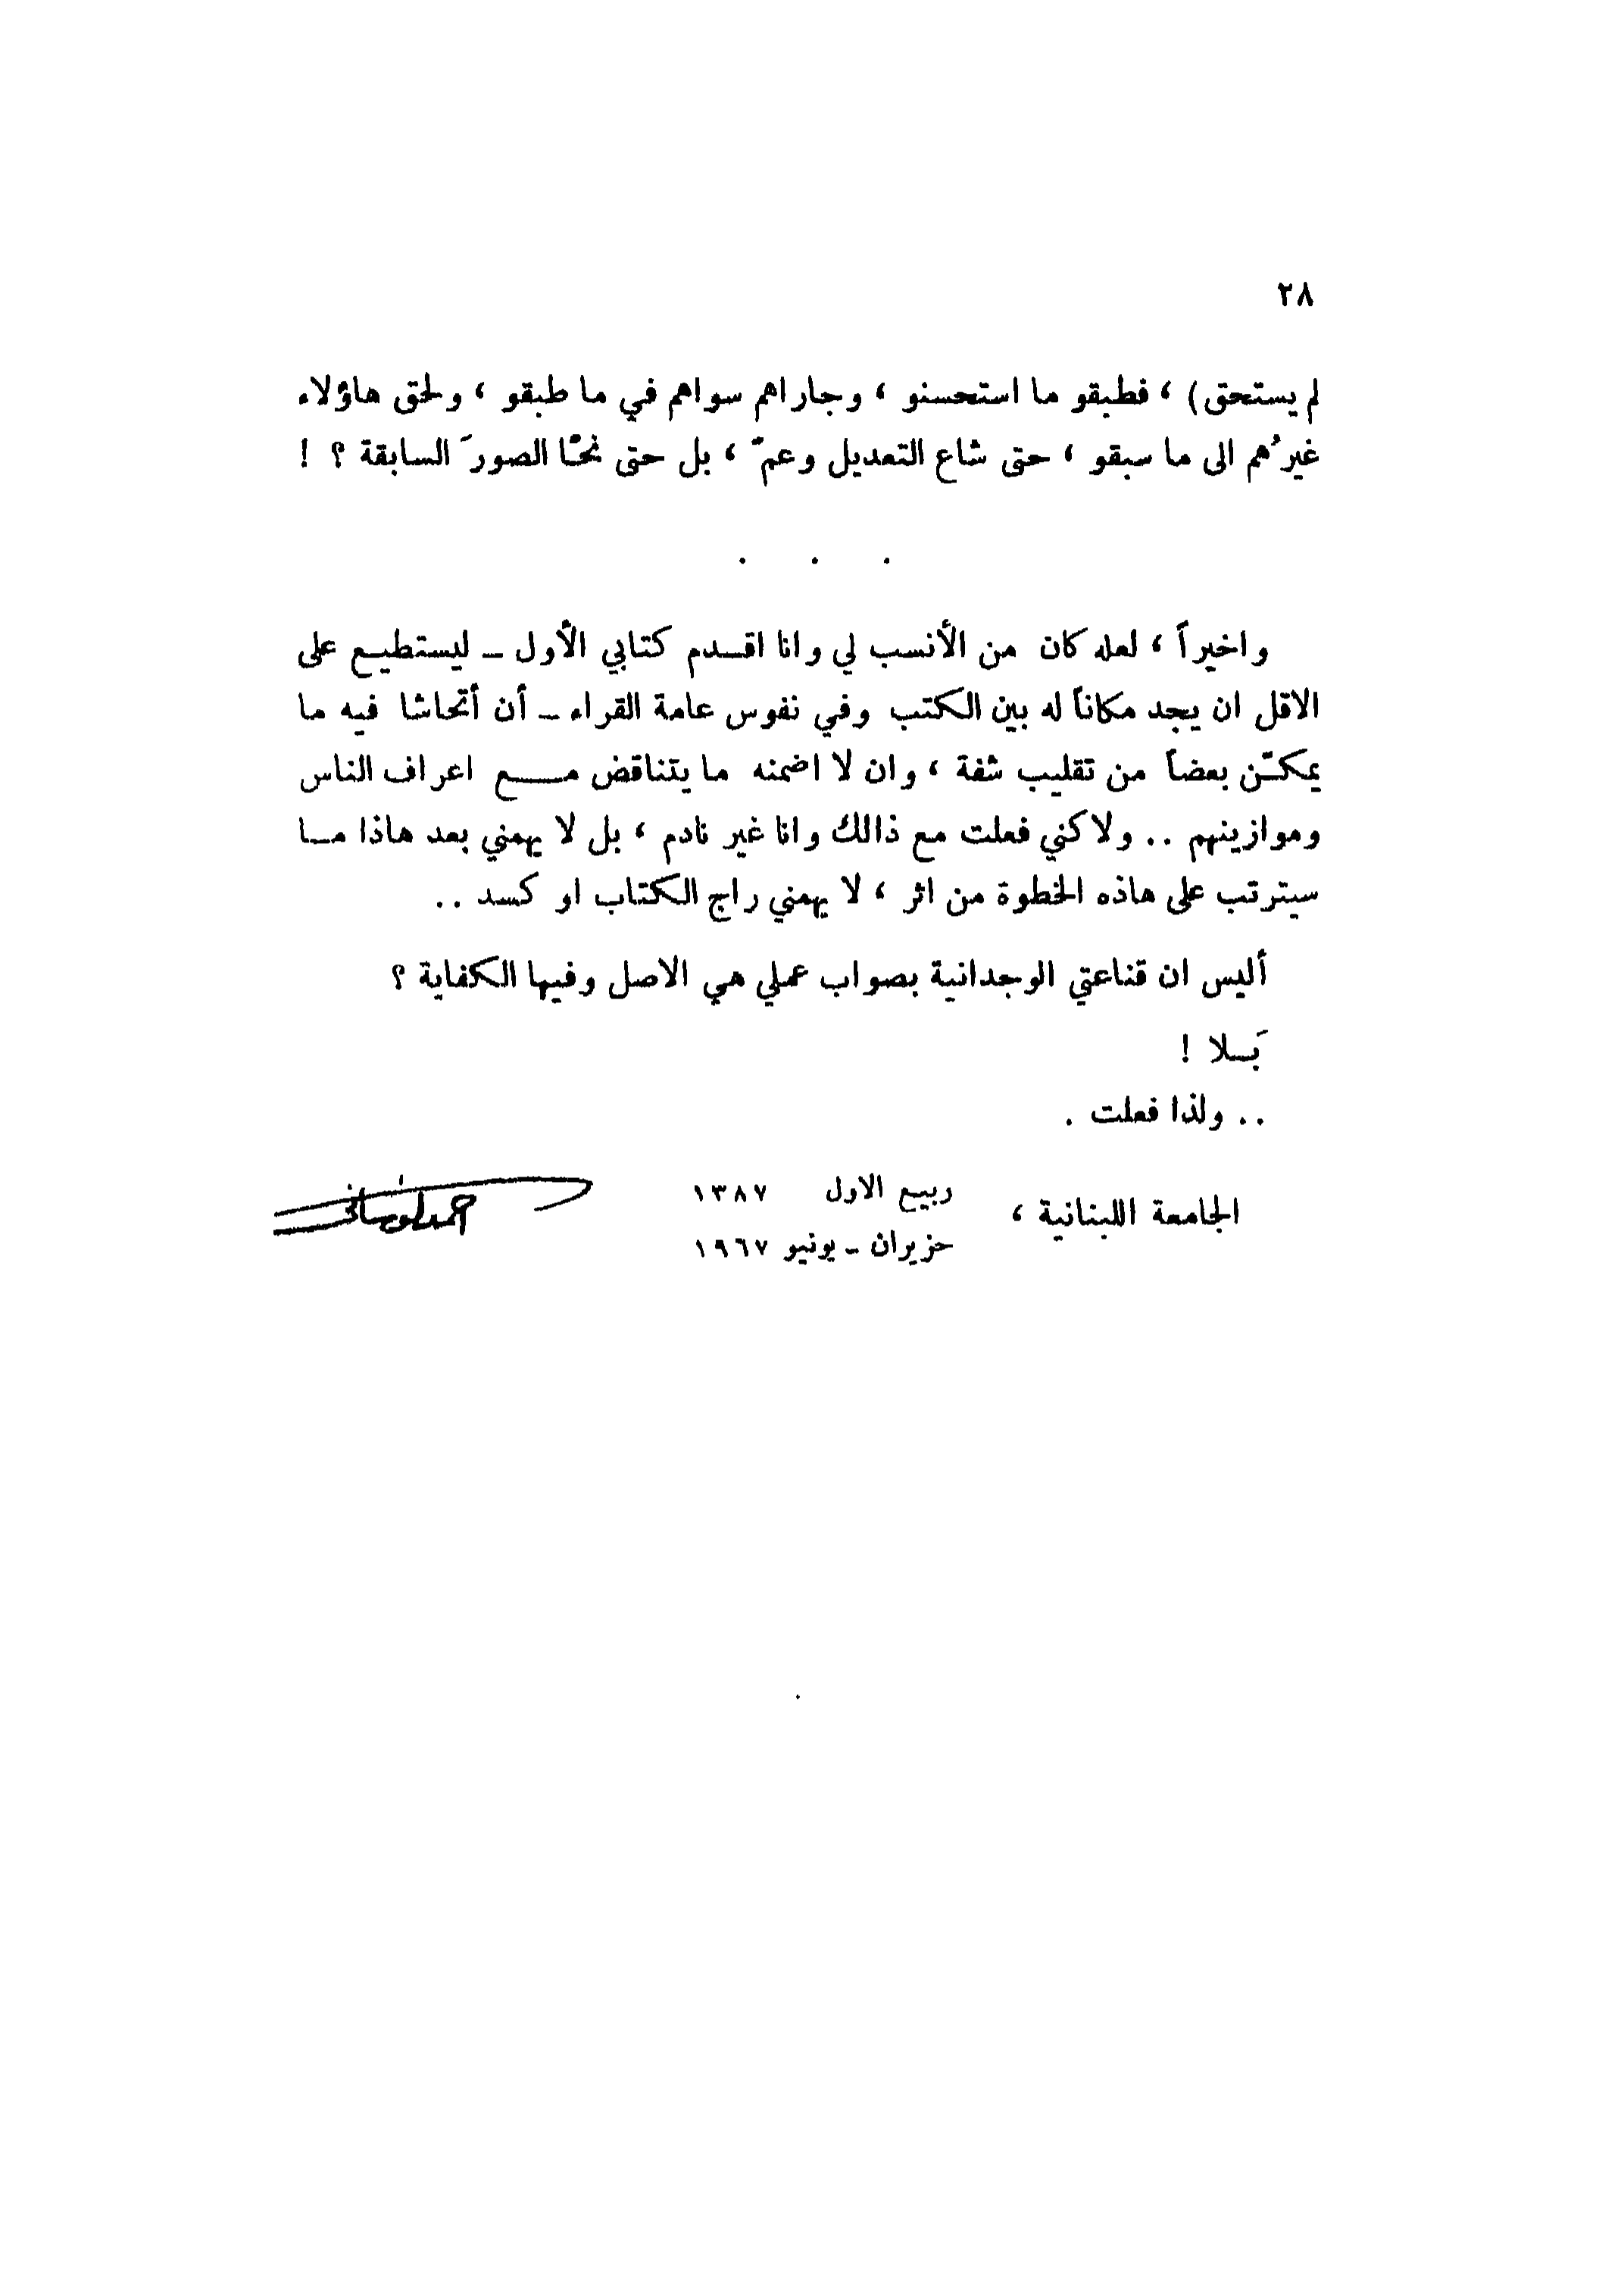 ٢٨
لم يستحق) ، فطبقو ما استحسنو ، وجاراهم سواهم في ما طبقو ، ولحق هاؤلاء
غيرُهم الى ما سبقو ، حتى شاع التعديل وعمّ ، بل حتى نحّا الصورَ السابقة ؟ !
. . .
واخيراً ، لعله كان من الأنسب لي وانا اقدم كتابي الأول – ليستطيع على
الاقل ان يجد مكاناً له بين الكتب وفي نفوس عامة القراء – أن أتحاشا فيه ما
يمكّن بعضاً من تقليب شفة ، وان لا اضمنه ما يتناقض مع اعراف الناس
وموازينهم .. ولاكني فعلت مع ذالك وانا غير نادم ، بل لا يهمني بعد هاذا ما
سيترتب على هاذه الخطوة من اثر ، لا يهمني راج الكتاب او كسد ..
أليس ان قناعتي الوجدانية بصواب عملي هي الاصل وفيها الكفاية ؟
بَلا !
.. ولذا فعلت .
الجامعة اللبنانية ،
ربيع الاول ١٣٨٧
حزيران – يونيو ١٩٦٧